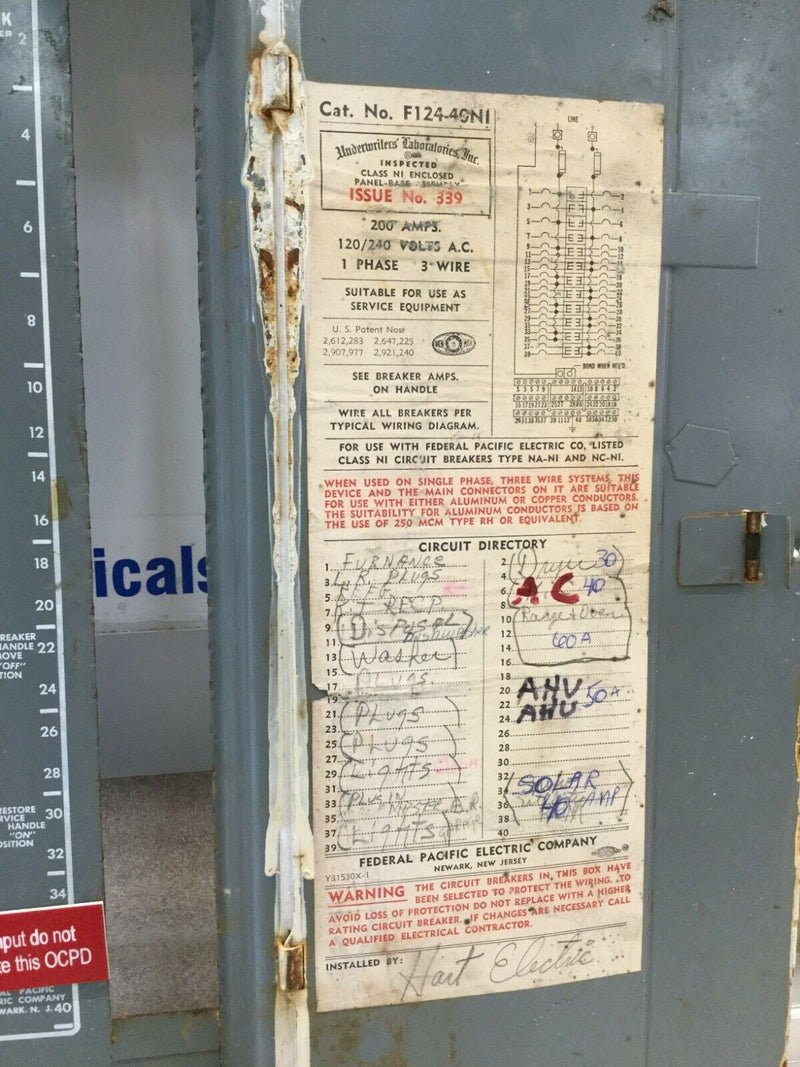 K
ER 2
4
6
8
10
12
14
16
18
20
22
24
26
28
30
32
34
40
REAKER
HANDLE
MOVE
"OFF"
TION
RESTORE
RVICE
HANDLE
"ON"
OSITION
icals
nput do not
te this OCPD
AL PACIFIC
RIC COMPANY
WARK. N. J.
Cat. No. F124-40N1
Underwriters' Laboratories, Inc.
INSPECTED
CLASS NI ENCLOSED
PANEL-BASE ASSEMBLY
ISSUE No. 339
200 AMPS.
120/240 VOLTS A.C.
1 PHASE 3 WIRE
SUITABLE FOR USE AS
SERVICE EQUIPMENT
U. S. Patent Nos.
2,612,283 2,647,225
2,907,977 2,921,240
SEE BREAKER AMPS.
ON HANDLE
WIRE ALL BREAKERS PER
TYPICAL WIRING DIAGRAM.
LINE
BOND WHEN REQ'D.
FOR USE WITH FEDERAL PACIFIC ELECTRIC CO. LISTED
CLASS NI CIRCUIT BREAKERS TYPE NA-NI AND NC-NI.
WHEN USED ON SINGLE PHASE, THREE WIRE SYSTEMS, THIS
DEVICE AND THE MAIN CONNECTORS ON IT ARE SUITABLE
FOR USE WITH EITHER ALUMINUM OR COPPER CONDUCTORS.
THE SUITABILITY FOR ALUMINUM CONDUCTORS IS BASED ON
THE USE OF 250 MCM TYPE RH OR EQUIVALENT.
CIRCUIT DIRECTORY
1. FURNANCE
3. L.R. PLUGS
5.
7. RECP.
9. DISPOSAL
11. DISHWASHER
13. Washer
15.
17. PLUGS
19.
21. (PLUGS
23.
25. (PLUGS
27.
29. (LIGHTS
31.
33. (PLUG IN
35. MASTER B.R.
37. (LIGHTS
39.
2. Dryer 30
4.
6. AC 40
8.
10. Range + Oven
12.
14. 60A
16.
18.
20. AHU 50A
22.
24. AHU
26.
28.
30.
32.
34. SOLAR
36. 40 AMP
38.
40.
FEDERAL PACIFIC ELECTRIC COMPANY
NEWARK, NEW JERSEY
Y31530X-1
WARNING THE CIRCUIT BREAKERS IN THIS BOX HAVE
BEEN SELECTED TO PROTECT THE WIRING. TO
AVOID LOSS OF PROTECTION DO NOT REPLACE WITH A HIGHER
RATING CIRCUIT BREAKER. IF CHANGES ARE NECESSARY CALL
A QUALIFIED ELECTRICAL CONTRACTOR.
INSTALLED BY: Hart Electric